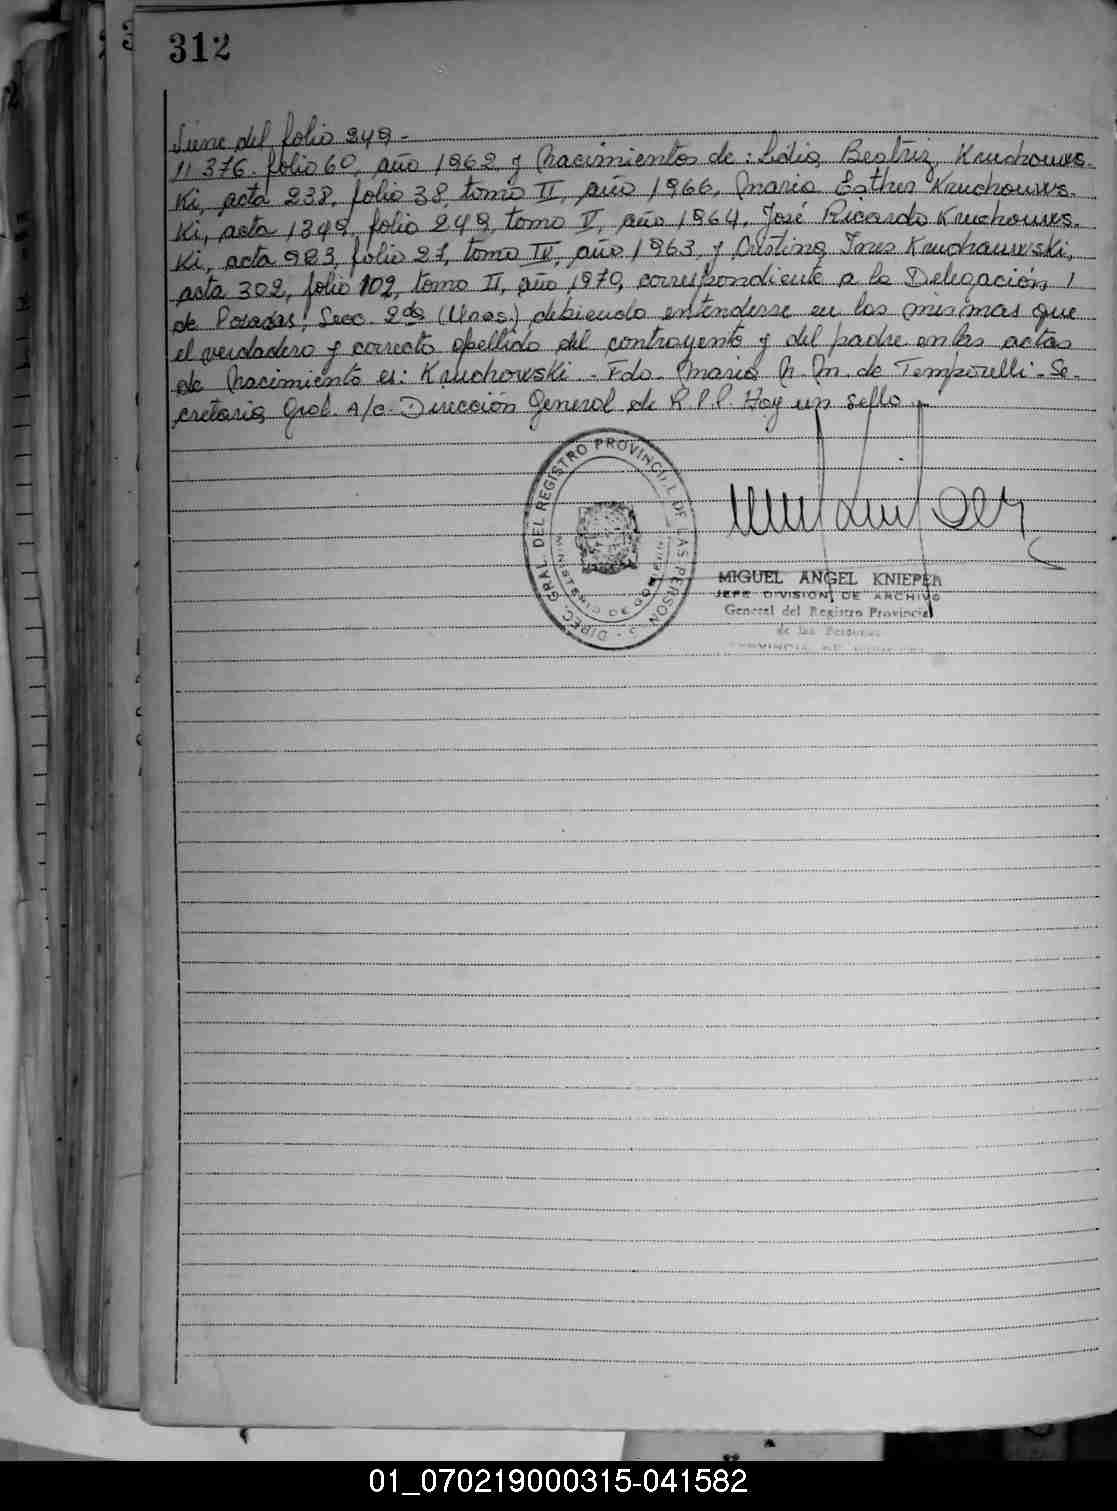 312
Viene del folio 249.-
11 376. folio 60, año 1962, y Nacimientos de: Lidia Beatriz Kruchouws-
ki, acta 238, folio 38, tomo II, año 1966, María Esther Kruchouws-
ki, acta 1349, folio 249, tomo V, año 1964, José Ricardo Kruchouws-
ki, acta 983, folio 27, tomo IV, año 1963, y Cristina Ines Kruchauwski,
acta 302, folio 102, tomo II, año 1970, correspondiente a la Delegación 1
de Posadas, Secc. 2da (Mnes.) debiendo entenderse en las mismas que
el verdadero y correcto apellido del contrayente y del padre en las actas
de Nacimiento es: Kruchowski.- Fdo. María N. M. de Temporelli.- Se-
cretaria Gral. A/c. Dirección General de R.P.P. Hay un sello.-
DIREC. GRAL. DEL REGISTRO PROVINCIAL DE LAS PERSONAS
MINISTERIO DE GOBIERNO
MIGUEL ANGEL KNIEPER
JEFE DIVISION DE ARCHIVO
General del Registro Provincial
de las Personas
PROVINCIA DE MISIONES
01_070219000315-041582